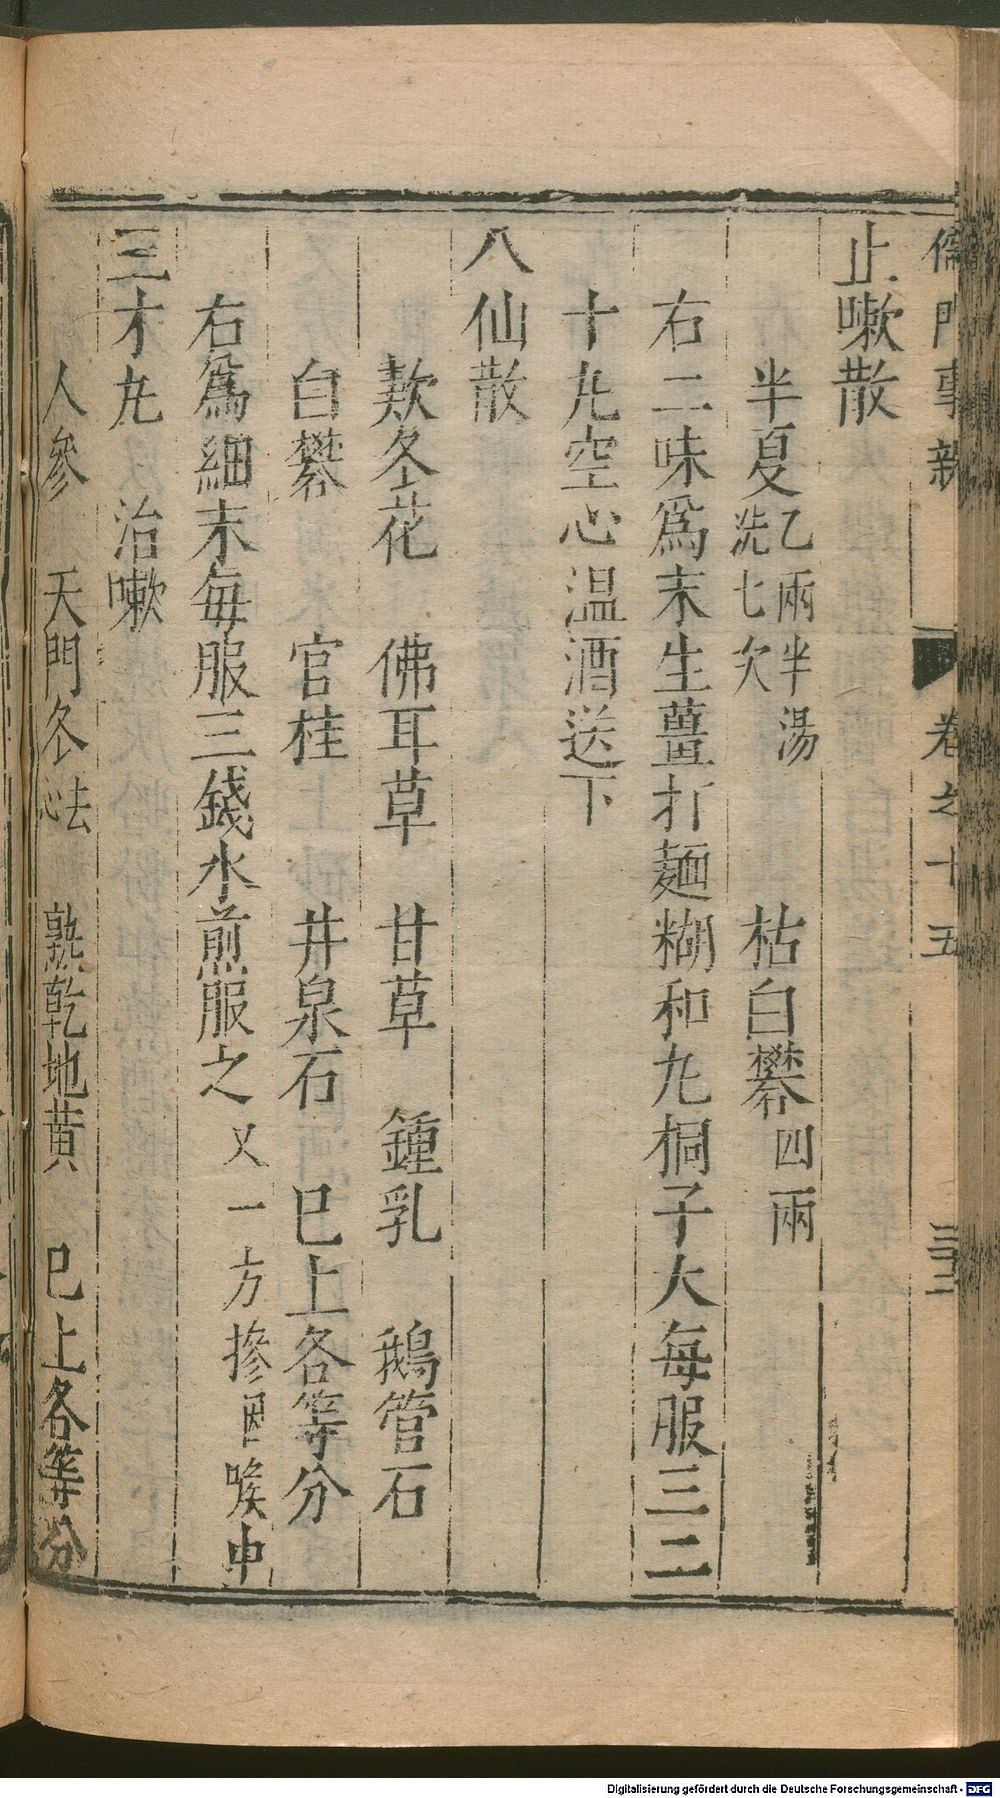 儒門事親　卷之十五　三十二
止嗽散
半夏乙兩半湯洗七次　枯白礬四兩
右二味爲末生薑打麵糊和丸桐子大每服三二
十丸空心温酒送下
八仙散
款冬花　佛耳草　甘草　鍾乳　鵝管石
白礬　官桂　井泉石　已上各等分
右爲細末每服三錢水煎服之又一方摻咽喉中
三才丸　治嗽
人參　天門冬去心　熟乾地黄　已上各等分
Digitalisierung gefördert durch die Deutsche Forschungsgemeinschaft - DFG